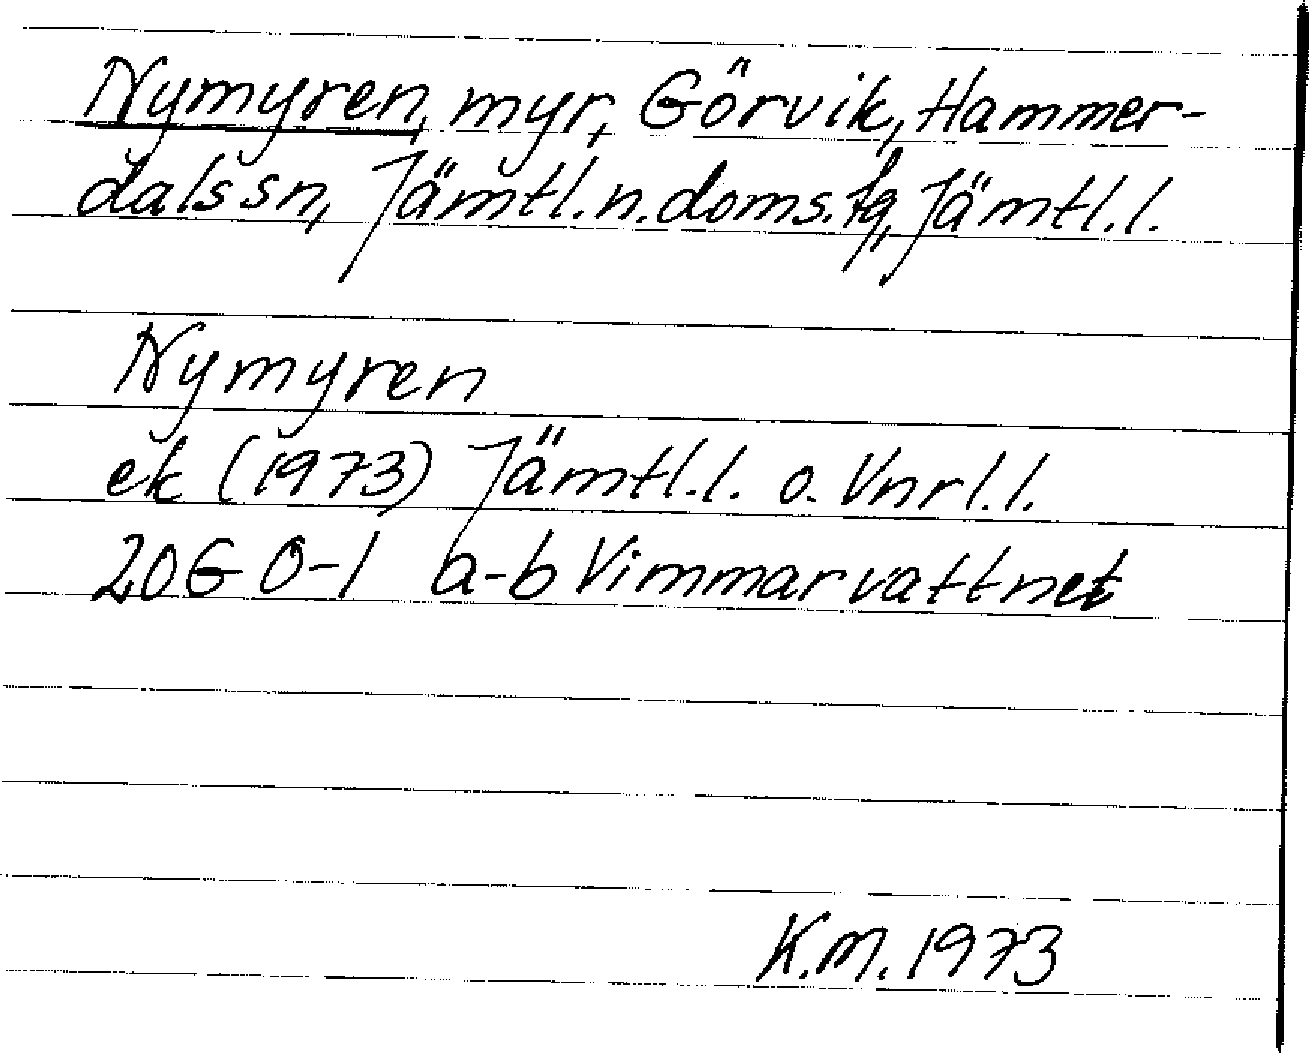 Nymyren, myr, Görvik, Hammer-
dals sn, Jämtl.n.doms.fg, Jämtl.l.
Nymyren
ek (1973) Jämtl.l. o. Vnrl.l.
20G 0-1 a-b Vimmarvattnet
K.M. 1973